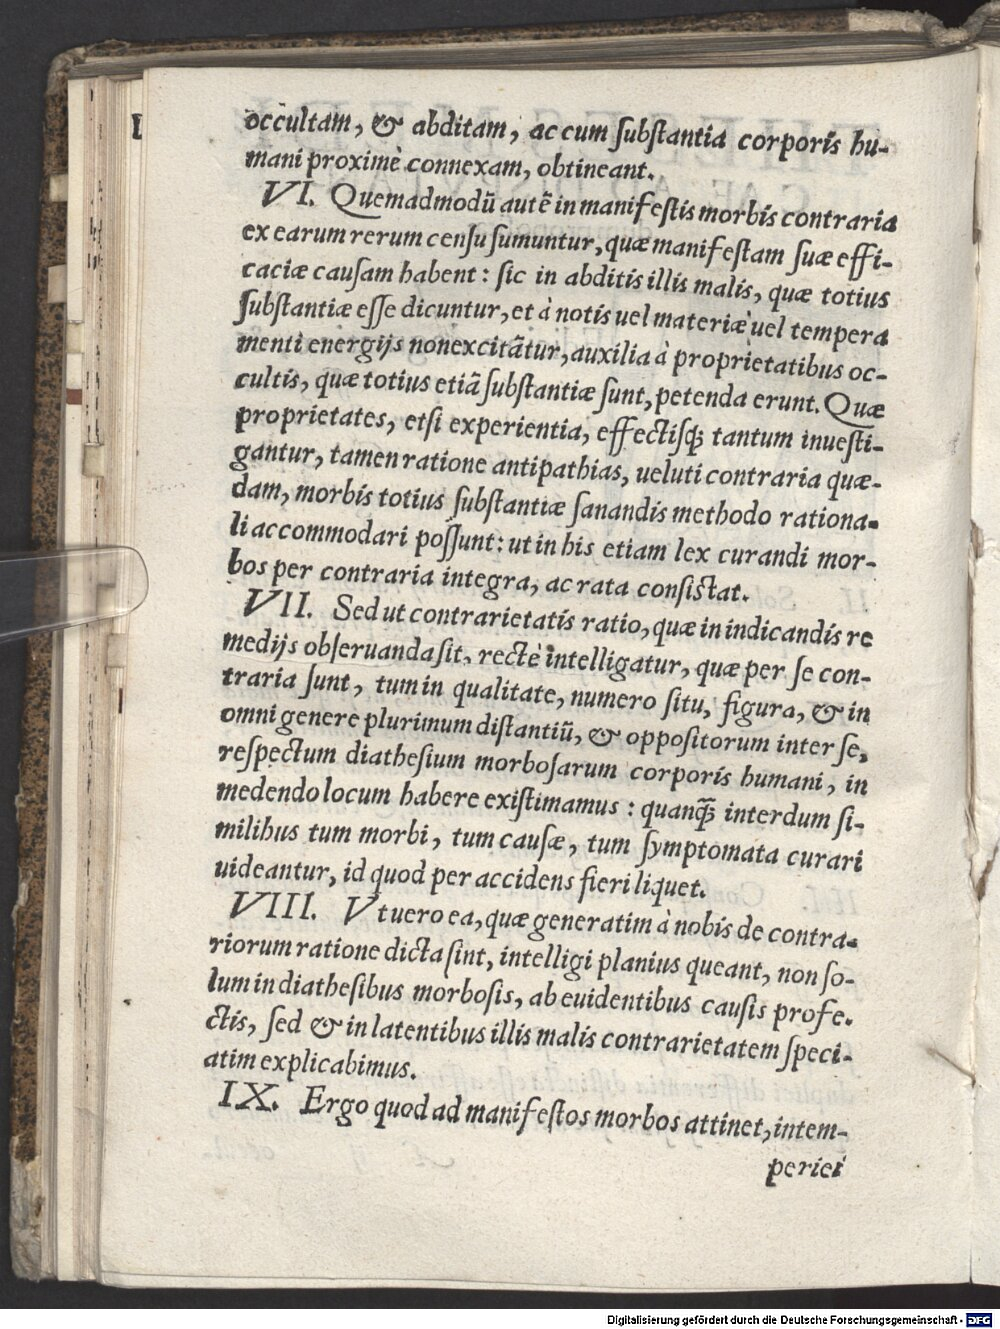 occultam, & abditam, ac cum ſubſtantia corporis hu-
mani proximè connexam, obtineant.
VI. Quemadmodū autē in manifeſtis morbis contraria
ex earum rerum cenſu ſumuntur, quæ manifeſtam ſuæ effi-
caciæ cauſam habent: ſic in abditis illis malis, quæ totius
ſubſtantiæ eſſe dicuntur, et à notis uel materiæ uel tempera
menti energijs non excitātur, auxilia à proprietatibus oc-
cultis, quæ totius etiā ſubſtantiæ ſunt, petenda erunt. Quæ
proprietates, etſi experientia, effectiſq́; tantum inueſti-
gantur, tamen ratione antipathias, ueluti contraria quæ-
dam, morbis totius ſubſtantiæ ſanandis methodo rationa-
li accommodari poſſunt: ut in his etiam lex curandi mor-
bos per contraria integra, ac rata conſiſtat.
VII. Sed ut contrarietatis ratio, quæ in indicandis re
medijs obſeruanda ſit, rectè intelligatur, quæ per ſe con-
traria ſunt, tum in qualitate, numero ſitu, figura, & in
omni genere plurimum diſtantiū, & oppoſitorum inter ſe,
reſpectum diatheſium morboſarum corporis humani, in
medendo locum habere exiſtimamus: quanq̃ interdum ſi-
milibus tum morbi, tum cauſæ, tum ſymptomata curari
uideantur, id quod per accidens fieri liquet.
VIII. Vt uero ea, quæ generatim à nobis de contra-
riorum ratione dicta ſint, intelligi planius queant, non ſo-
lum in diatheſibus morboſis, ab euidentibus cauſis profe-
ctis, ſed & in latentibus illis malis contrarietatem ſpeci-
atim explicabimus.
IX. Ergo quod ad manifeſtos morbos attinet, intem-
periei
Digitalisierung gefördert durch die Deutsche Forschungsgemeinschaft - DFG